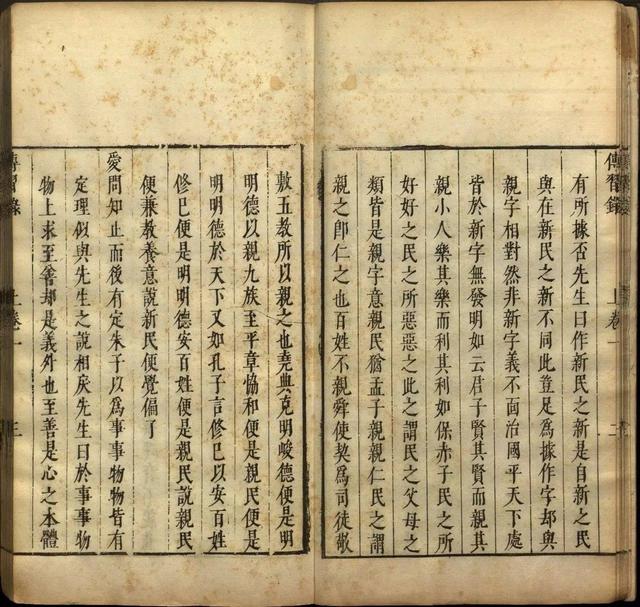 傳習錄
上卷一
二
有所據否先生曰作新民之新是自新之民
與在新民之新不同此豈足為據作字却與
親字相對然非新字義下面治國平天下處
皆於新字無發明如云君子賢其賢而親其
親小人樂其樂而利其利如保赤子民之所
好好之民之所惡惡之此之謂民之父母之
類皆是親字意親民猶孟子親親仁民之謂
親之卽仁之也百姓不親舜使契為司徒敬
敷五教所以親之也堯典克明峻德便是明
明德以親九族至平章協和便是親民便是
明明德於天下又如孔子言修己以安百姓
修己便是明明德安百姓便是親民說親民
便兼教養意說新民便覺偏了
愛問知止而後有定朱子以為事事物物皆有
定理似與先生之說相戾先生曰於事事物
物上求至善却是義外也至善是心之本體
傳習錄
上卷一
三